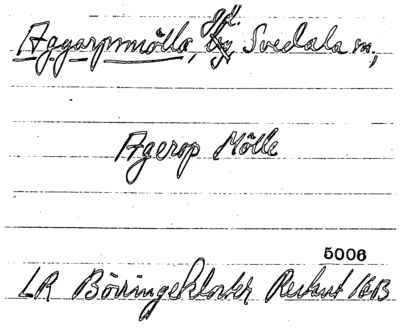 Aggarpsmölla, gd. Svedala sn,
Agerop Mölle
5006
LR Börringekloster Restant 16B